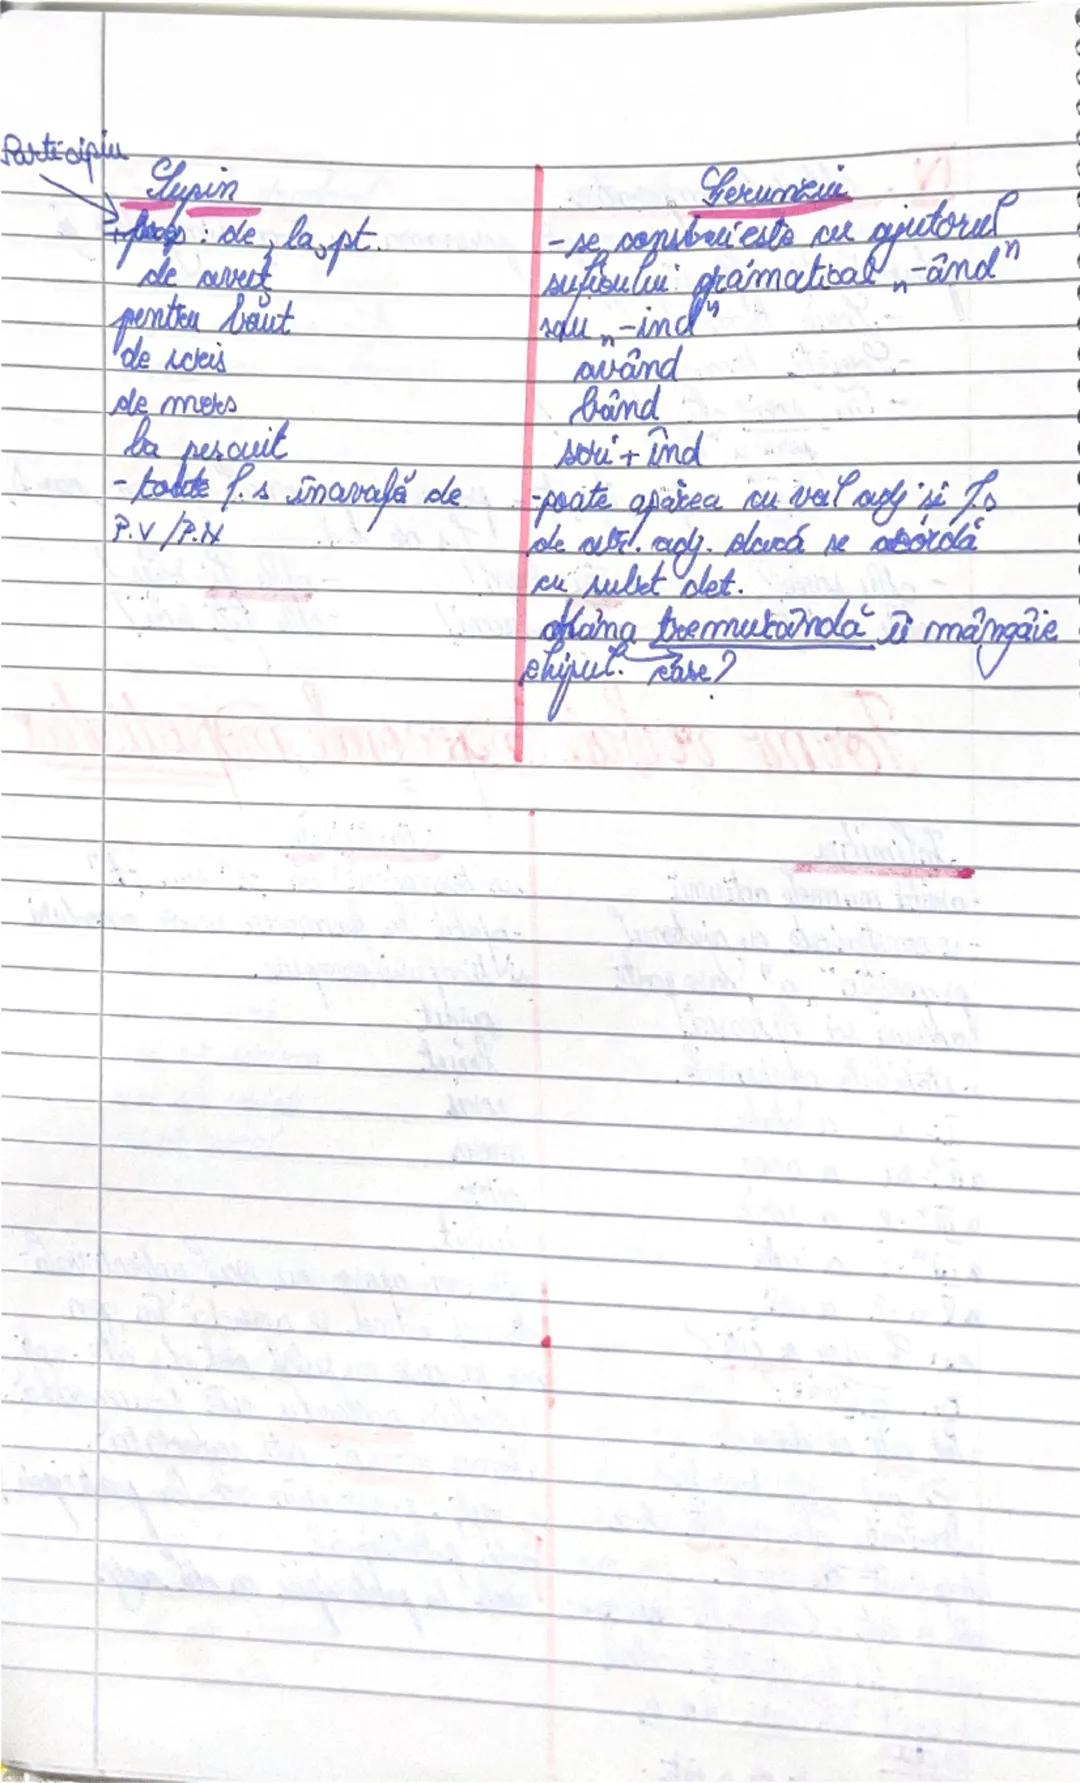 Participiu
Supin
+ prep: de, la, pt.
de avut
pentru băut
de scris
de mers
la pescuit
- toate f. s în afară de
P.V/P.N
Gerunziu
- se construiește cu ajutorul
sufixului gramatical „-ând”
sau „-ind”
având
bând
scri + ind
- poate apărea cu val adj și f.s
de atr. adj. dacă se acordă
cu subst det.
Mâna tremurândă îi mângâie
chipul. care?